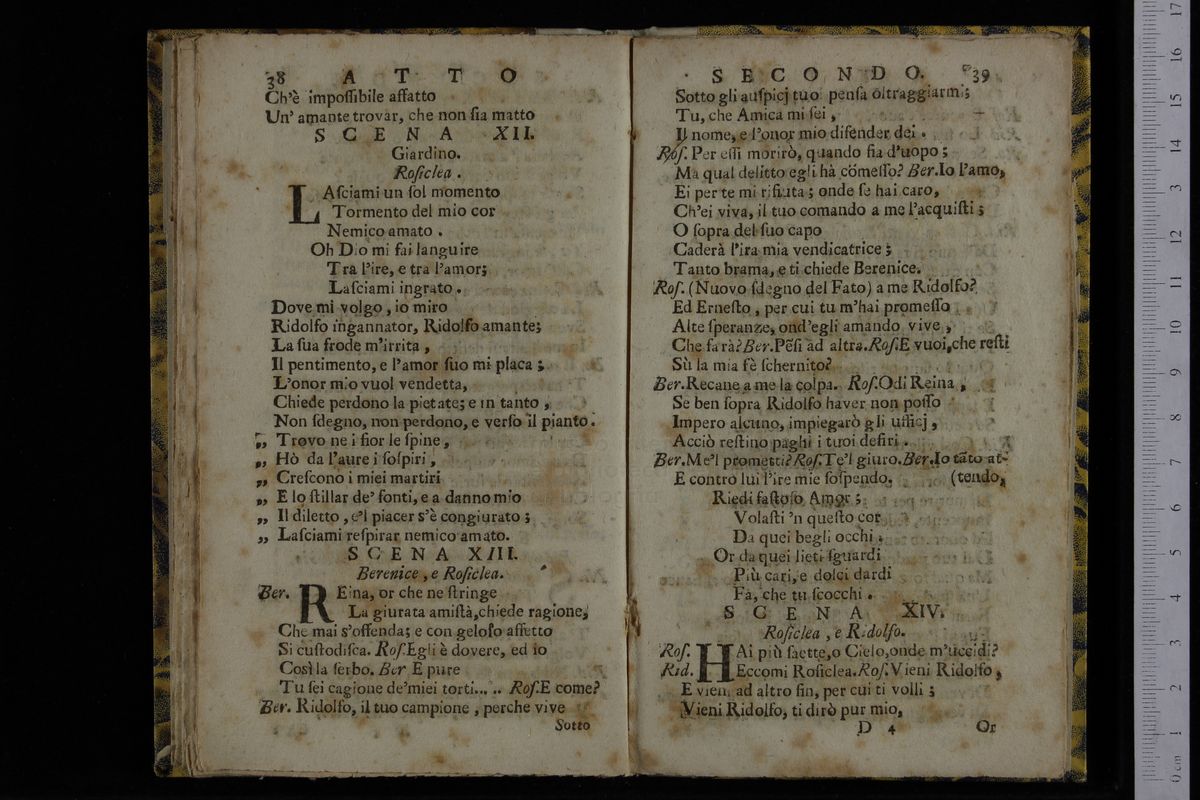 38 ATTO
Ch'è impoſſibile affatto
Un' amante trovar, che non ſia matto
SCENA XII.
Giardino.
Roſiclea .
LAſciami un ſol momento
Tormento del mio cor
Nemico amato .
Oh Dio mi fai languire
Tra l'ire, e tra l'amor;
Laſciami ingrato .
Dove mi volgo , io miro
Ridolfo ingannator, Ridolfo amante;
La ſua frode m'irrita ,
Il pentimento, e l'amor ſuo mi placa ;
L'onor mio vuol vendetta,
Chiede perdono la pietate; e in tanto ,
Non ſdegno, non perdono, e verſo il pianto.
„ Trovo ne i fior le ſpine ,
„ Hò da l'aure i ſoſpiri ,
„ Creſcono i miei martiri
„ E lo ſtillar de' fonti, e a danno mio
„ Il diletto , e'l piacer s'è congiurato ;
„ Laſciami reſpirar nemico amato.
SCENA XIII.
Berenice , e Roſiclea.
Ber. REina, or che ne ſtringe
La giurata amiſtà,chiede ragione,
Che mai s'offenda; e con geloſo affetto
Si cuſtodiſca. Roſ.Egli è dovere, ed io
Così la ſerbo. Ber E pure
Tu ſei cagione de'miei torti... .. Roſ.E come?
Ber. Ridolfo, il tuo campione , perche vive
Sotto
SECONDO. 39
Sotto gli auſpicj tuoi penſa oltraggiarmi;
Tu, che Amica mi ſei ,
Il nome, e l'onor mio difender dei .
Roſ. Per eſſi morirò, quando ſia d'uopo ;
Ma qual delitto egli hà cõmeſſo? Ber.Io l'amo,
Ei per te mi rifiuta ; onde ſe hai caro,
Ch'ei viva, il tuo comando a me l'acquiſti ;
O ſopra del ſuo capo
Caderà l'ira mia vendicatrice ;
Tanto brama, e ti chiede Berenice.
Roſ. (Nuovo ſdegno del Fato) a me Ridolfo?
Ed Erneſto , per cui tu m'hai promeſſo
Alte ſperanze, ond'egli amando vive ,
Che farà? Ber.Pẽſi ad altra.Roſ.E vuoi,che reſti
Sù la mia fè ſchernito?
Ber.Recane a me la colpa. Roſ.Odi Reina ,
Se ben ſopra Ridolfo haver non poſſo
Impero alcuno, impiegarò gli ufficj ,
Acciò reſtino paghi i tuoi deſiri .
Ber.Me'l prometti? Roſ.Te'l giuro.Ber.Io tãto at-
E contro lui l'ire mie ſoſpendo. (tendo,
Riedi faſtoſo Amor ;
Volaſti 'n queſto cor
Da quei begli occhi .
Or da quei lieti ſguardi
Più cari, e dolci dardi
Fà, che tu ſcocchi .
SCENA XIV.
Roſiclea , e Ridolfo.
Roſ. HAi più ſaette,o Cielo,onde m'uccidi?
Rid. Eccomi Roſiclea.Roſ.Vieni Ridolfo ,
E vieni ad altro fin, per cui ti volli ;
Vieni Ridolfo, ti dirò pur mio,
D 4 Or
17
16
15
14
13
12
11
10
9
8
7
6
5
4
3
2
1
0 cm